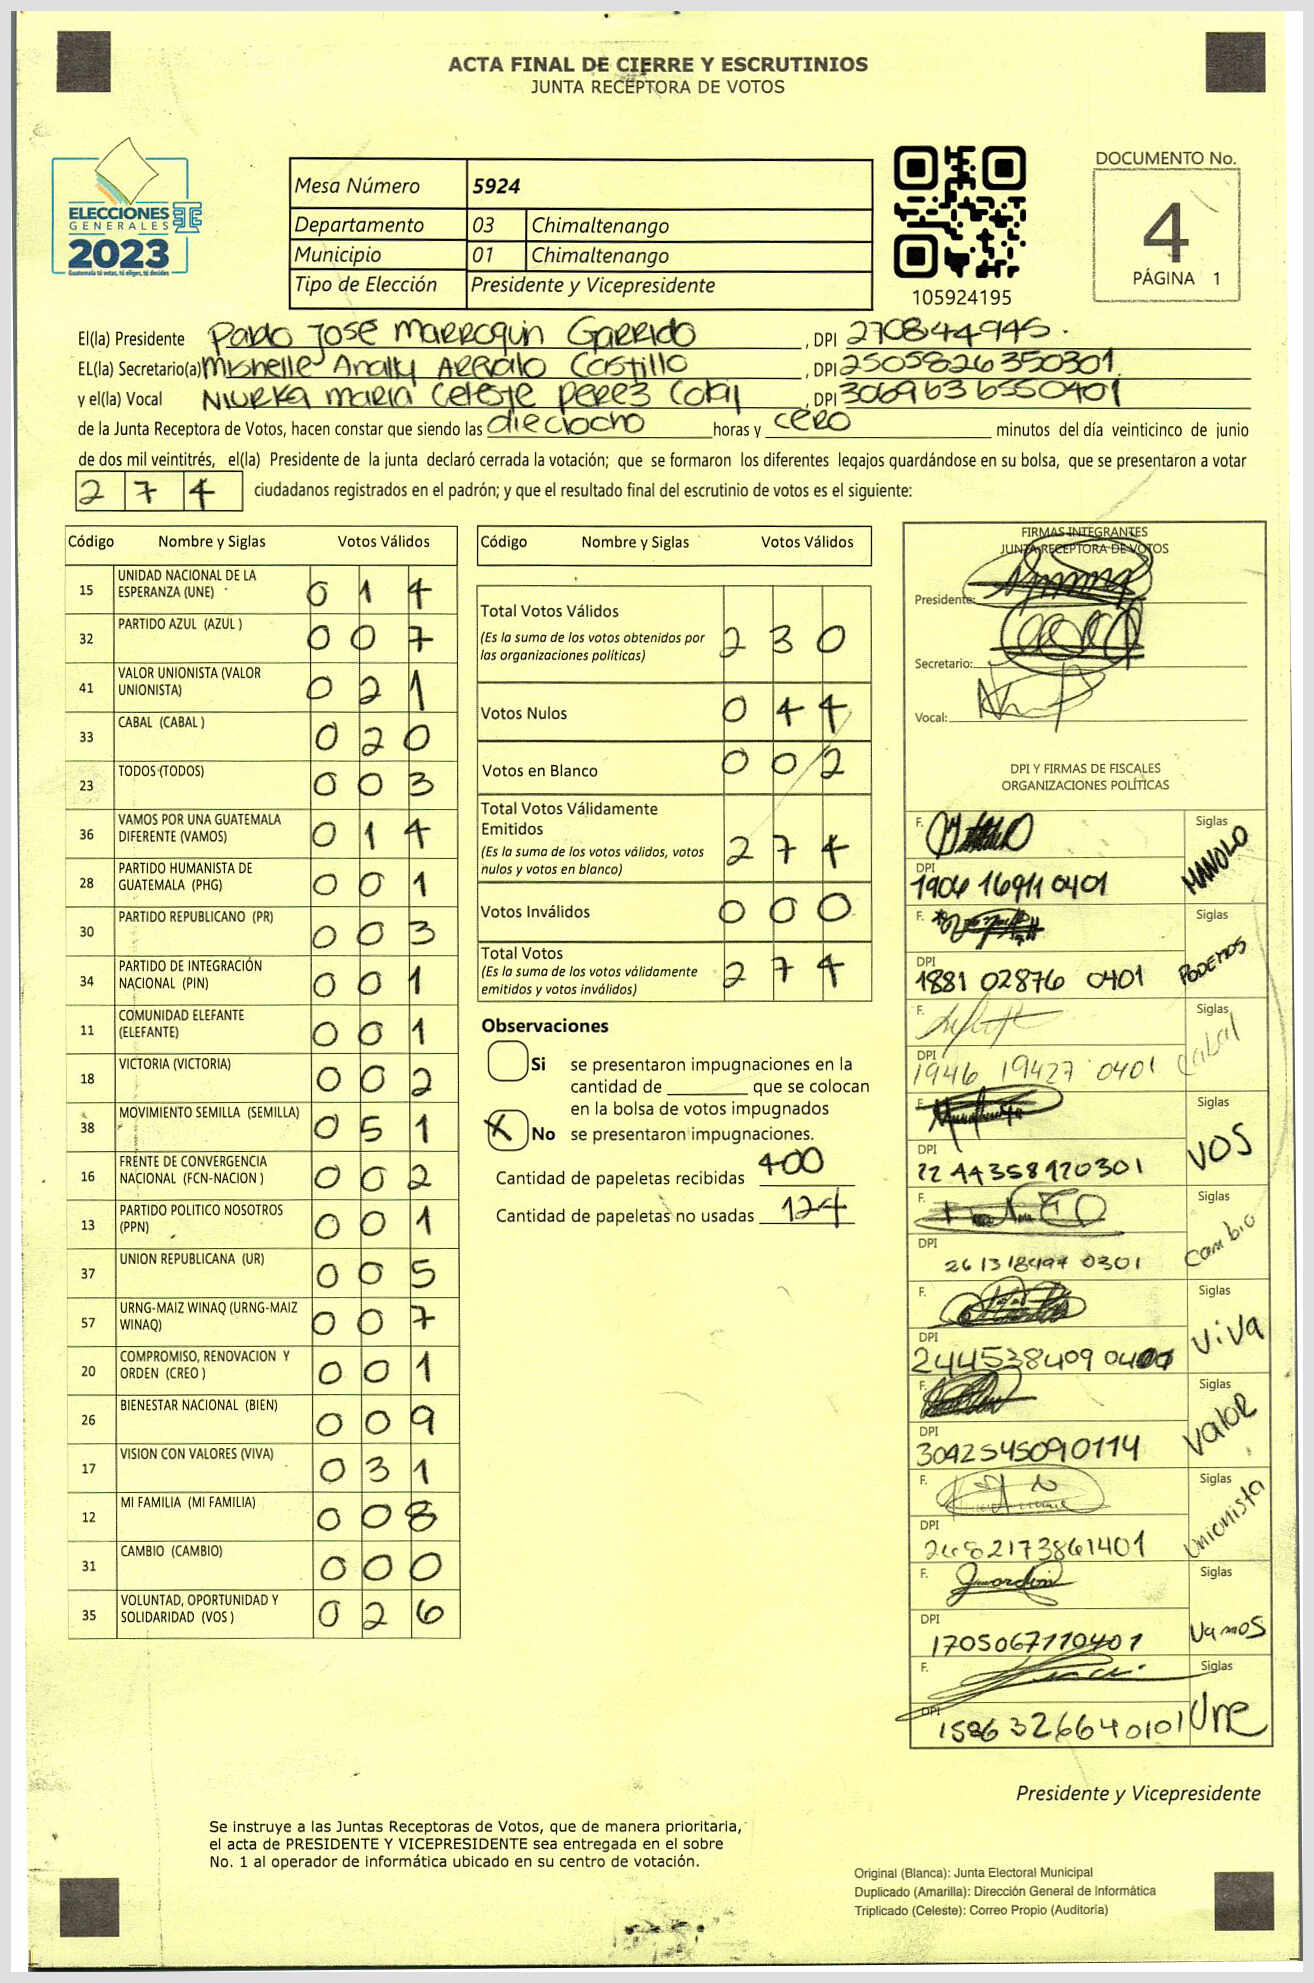 ACTA FINAL DE CIERRE Y ESCRUTINIOS
JUNTA RECEPTORA DE VOTOS
ELECCIONES
GENERALES
2023
Guatemala tú votas, tú eliges, tú decides
Mesa Número 5924
Departamento 03 Chimaltenango
Municipio 01 Chimaltenango
Tipo de Elección Presidente y Vicepresidente
105924195
DOCUMENTO No.
4
PÁGINA 1
El(la) Presidente Pablo José Marroquin Garrido, DPI 270844945.
EL(la) Secretario(a) Mishelle Anally Arevalo Castillo, DPI 2505826350301
y el(la) Vocal Niurka Maria Celeste Perez Cotaj, DPI 3069636550401
de la Junta Receptora de Votos, hacen constar que siendo las dieciocho horas y cero minutos del día veinticinco de junio
de dos mil veintitrés, el(la) Presidente de la junta declaró cerrada la votación; que se formaron los diferentes legajos guardándose en su bolsa, que se presentaron a votar
274 ciudadanos registrados en el padrón; y que el resultado final del escrutinio de votos es el siguiente:
Código Nombre y Siglas Votos Válidos
15 UNIDAD NACIONAL DE LA ESPERANZA (UNE) 014
32 PARTIDO AZUL (AZUL ) 007
41 VALOR UNIONISTA (VALOR UNIONISTA) 021
33 CABAL (CABAL ) 020
23 TODOS (TODOS) 003
36 VAMOS POR UNA GUATEMALA DIFERENTE (VAMOS) 014
28 PARTIDO HUMANISTA DE GUATEMALA (PHG) 001
30 PARTIDO REPUBLICANO (PR) 003
34 PARTIDO DE INTEGRACIÓN NACIONAL (PIN) 001
11 COMUNIDAD ELEFANTE (ELEFANTE) 001
18 VICTORIA (VICTORIA) 002
38 MOVIMIENTO SEMILLA (SEMILLA) 051
16 FRENTE DE CONVERGENCIA NACIONAL (FCN-NACION ) 002
13 PARTIDO POLITICO NOSOTROS (PPN) 001
37 UNION REPUBLICANA (UR) 005
57 URNG-MAIZ WINAQ (URNG-MAIZ WINAQ) 007
20 COMPROMISO, RENOVACION Y ORDEN (CREO ) 001
26 BIENESTAR NACIONAL (BIEN) 009
17 VISION CON VALORES (VIVA) 031
12 MI FAMILIA (MI FAMILIA) 008
31 CAMBIO (CAMBIO) 000
35 VOLUNTAD, OPORTUNIDAD Y SOLIDARIDAD (VOS ) 026
Código Nombre y Siglas Votos Válidos
Total Votos Válidos 230
(Es la suma de los votos obtenidos por
las organizaciones políticas)
Votos Nulos 044
Votos en Blanco 002
Total Votos Válidamente
Emitidos 274
(Es la suma de los votos válidos, votos
nulos y votos en blanco)
Votos Inválidos 000
Total Votos 274
(Es la suma de los votos válidamente
emitidos y votos inválidos)
Observaciones
Si se presentaron impugnaciones en la
cantidad de ________ que se colocan
en la bolsa de votos impugnados
X No se presentaron impugnaciones.
Cantidad de papeletas recibidas 400
Cantidad de papeletas no usadas 124
FIRMAS INTEGRANTES
JUNTA RECEPTORA DE VOTOS
Presidente:
Secretario:
Vocal:
DPI Y FIRMAS DE FISCALES
ORGANIZACIONES POLÍTICAS
F. Siglas MANOLO
DPI 1904 16911 0401
F. Siglas PODEMOS
DPI 1881 02876 0401
F. Siglas Cabal
DPI 1946 19427 0401
F. Siglas VOS
DPI 2244358920301
F. Siglas Cambio
DPI 261318497 0301
F. Siglas Viva
DPI 2445384090401
F. Siglas Valor
DPI 3042545090114
F. Siglas Unionista
DPI 2482173861401
F. Siglas Vamos
DPI 1705067110401
F. Siglas Une
DPI 1586326640101
Presidente y Vicepresidente
Se instruye a las Juntas Receptoras de Votos, que de manera prioritaria,
el acta de PRESIDENTE Y VICEPRESIDENTE sea entregada en el sobre
No. 1 al operador de informática ubicado en su centro de votación.
Original (Blanca): Junta Electoral Municipal
Duplicado (Amarilla): Dirección General de Informática
Triplicado (Celeste): Correo Propio (Auditoría)